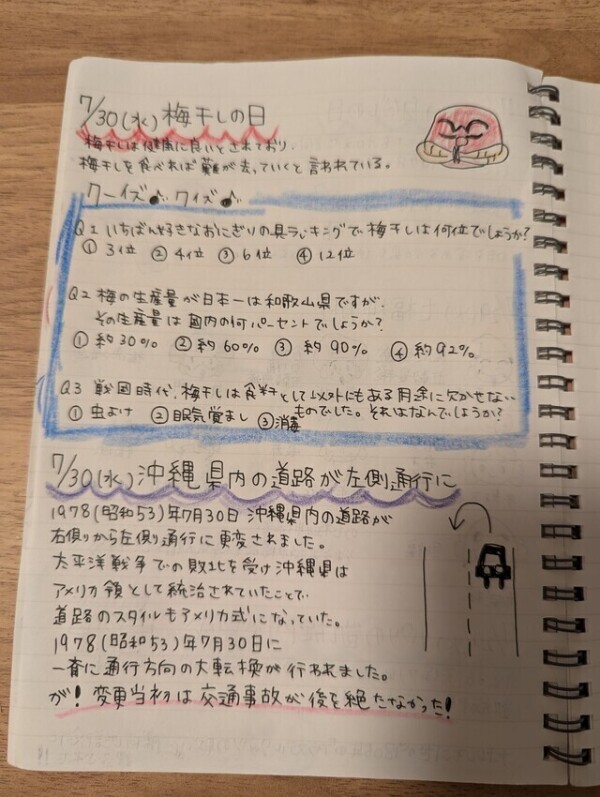 7/30(水) 梅干しの日
梅干しは健康に良いとされており、
梅干しを食べれば難が去っていくと言われている。
クーイズ♪クイズ♪
Q1 いちばん好きなおにぎりの具ランキングで梅干しは何位でしょうか?
① 3位 ② 4位 ③ 6位 ④ 12位
Q2 梅の生産量が日本一は和歌山県ですが、
その生産量は国内の何パーセントでしょうか?
① 約30% ② 約60% ③ 約90% ④ 約92%
Q3 戦国時代、梅干しは食料として以外にもある用途に欠かせない
ものでした。それはなんでしょうか?
① 虫よけ ② 眠気覚まし ③ 消毒
7/30(水) 沖縄県内の道路が左側通行に
1978(昭和53)年7月30日 沖縄県内の道路が
右側から左側通行に更変されました。
太平洋戦争での敗北を受け沖縄県は
アメリカ領として統治されていたことで
道路のスタイルもアメリカ式になっていた。
1978(昭和53)年7月30日に
一斉に通行方向の大転換が行われました。
が! 変更当初は交通事故が後を絶たなかった!